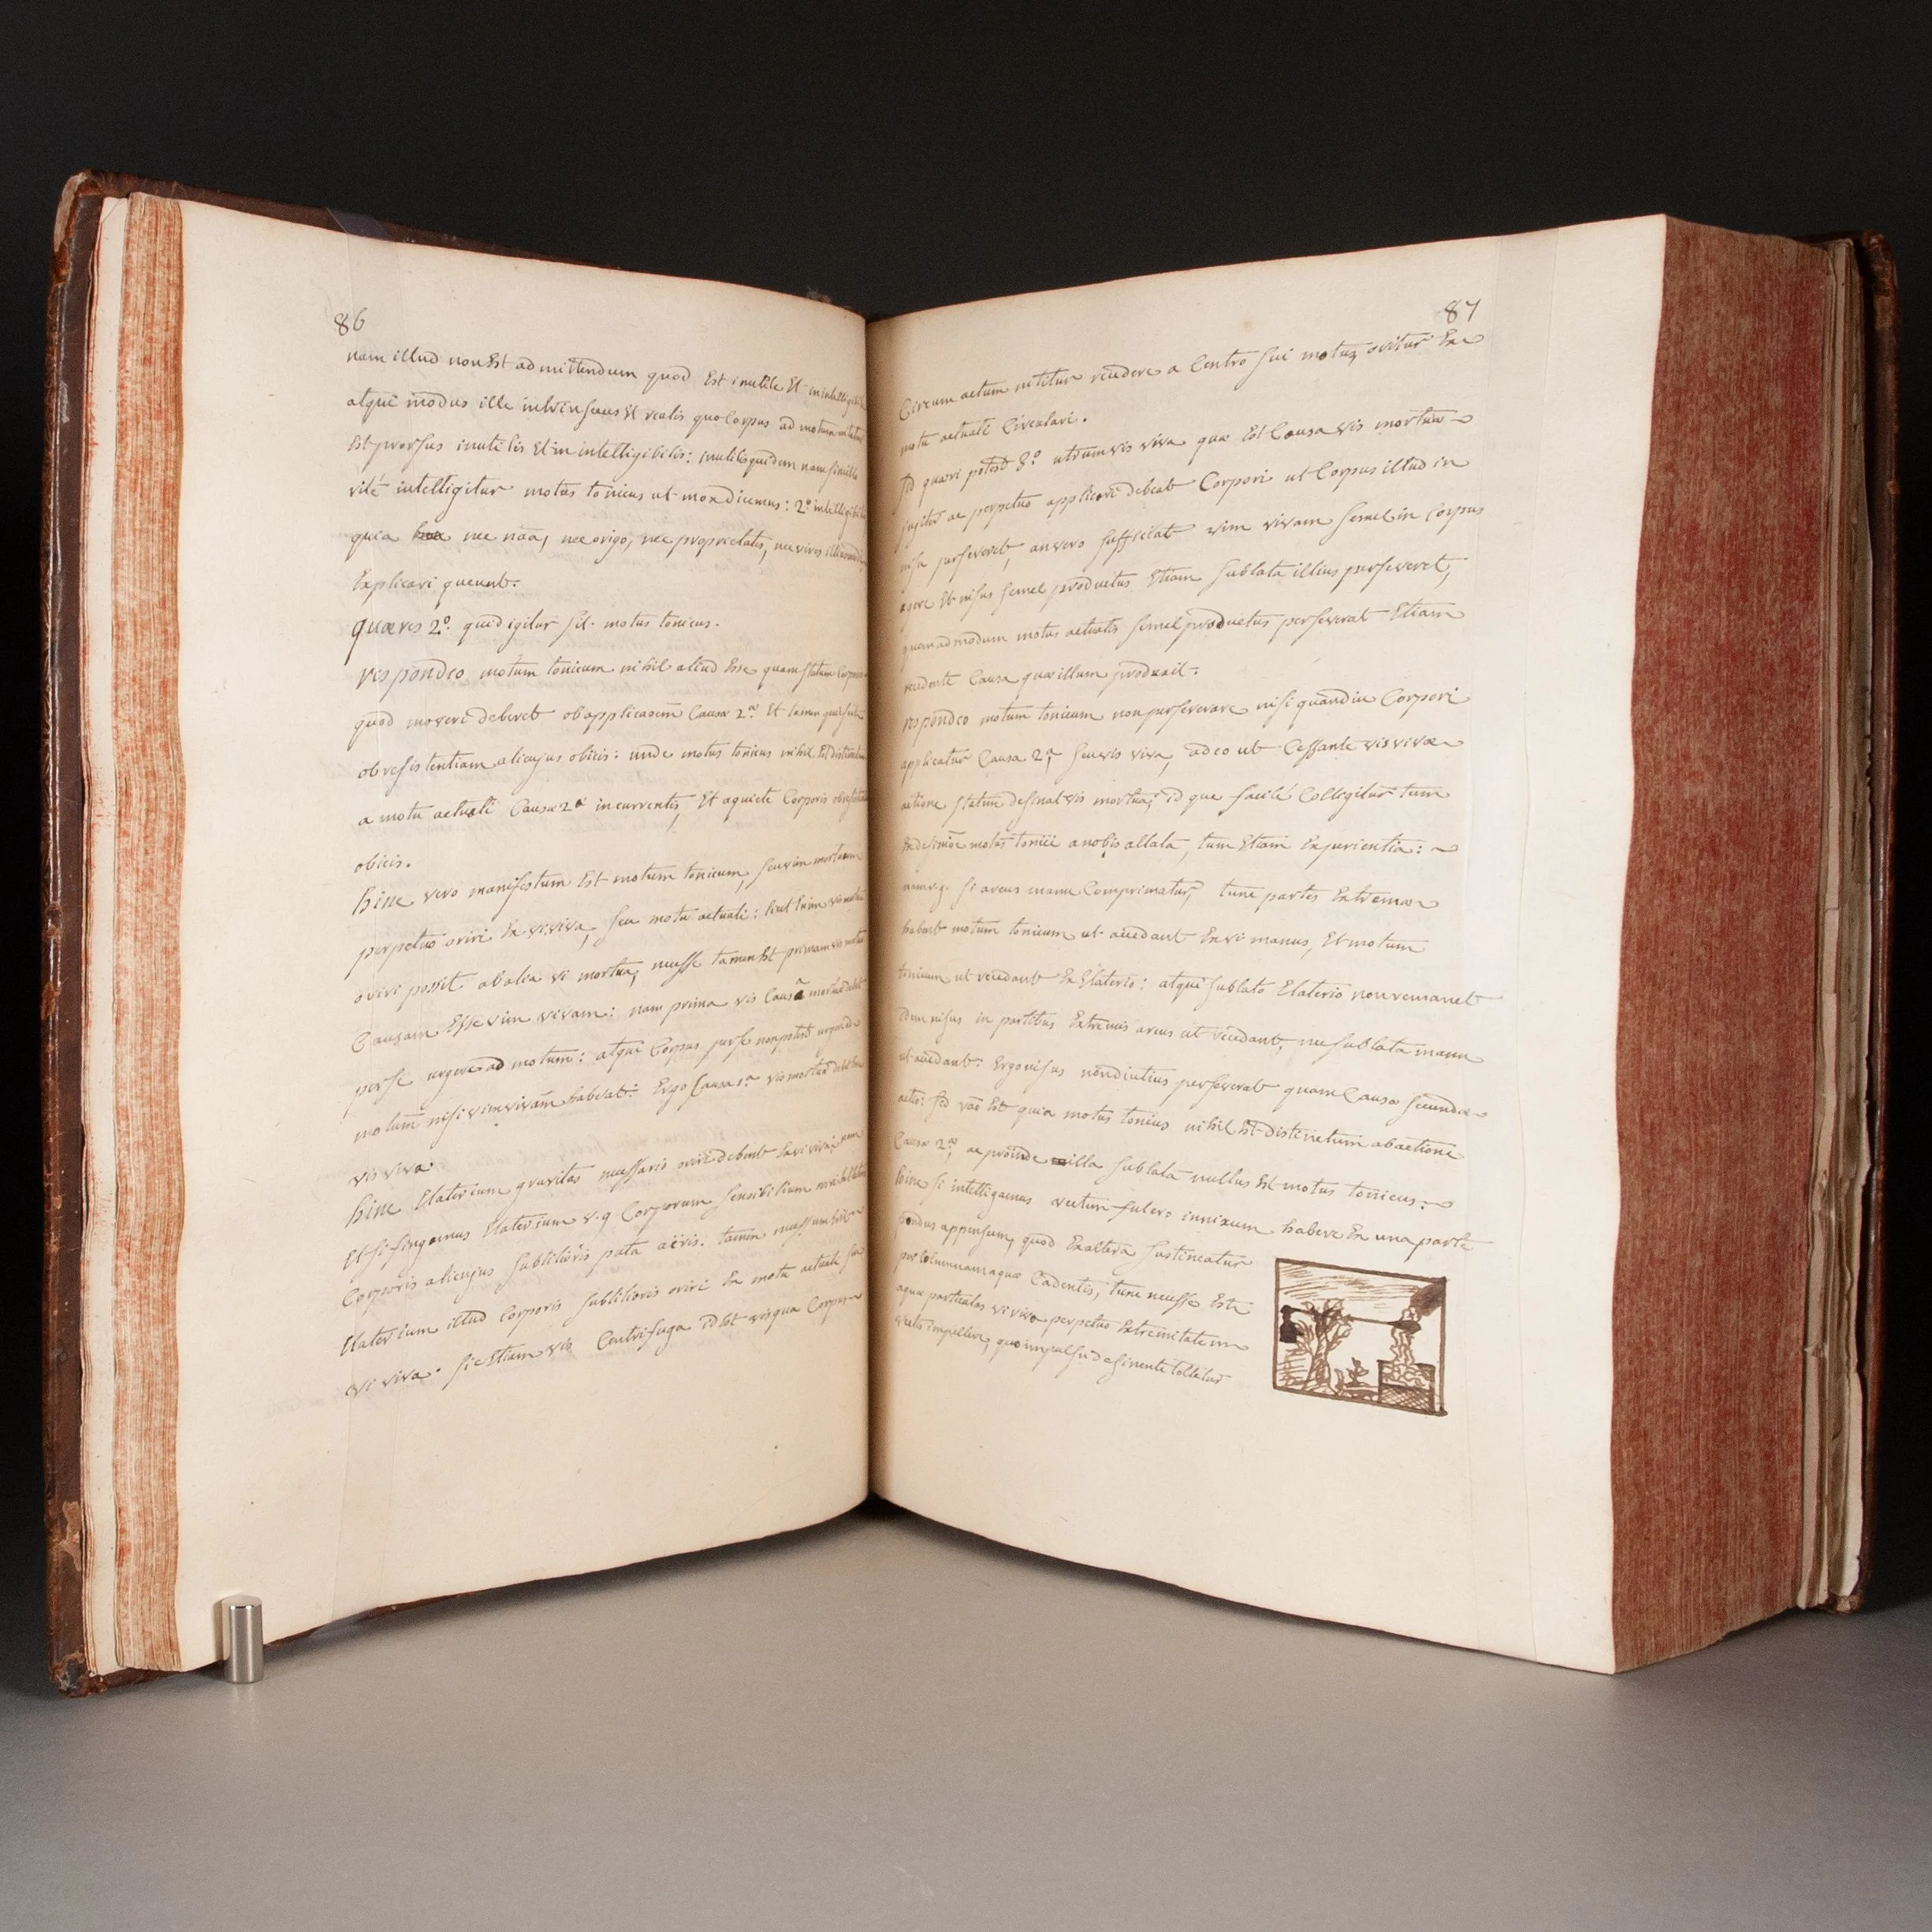 86
nam illud non Est admittendum quod Est inutile Et inintelligibile
atqui modus ille intrinsecus Et realis quo Corpus ad motum
Est prorsus inutilis Et inintelligibilis: inutilis quidem nam
intelligitur motus tonicus ut mox dicemus: 2.o
quia nec nãa, nec origo, nec proprietates, nec vires
Explicari queunt.
quæres 2.o quid igitur sit motus tonicus.
respondeo motum tonicum nihil aliud Esse quam statum Corporis
quod moveri deberet ob applicaõem Causæ 2.æ Et tamen
ob resistentiam alicujus obicis: unde motus tonicus nihil Est distinctum
a motu actuali Causæ 2.æ incurrentis, Et a quiete Corporis
obicis.
hinc vero manifestum Est motum tonicum, seu vim mortuam
perpetuo oriri Ex vi viva, seu motu actuali: licet Enim vis mortua
oriri possit ab alia vi mortua, necesse tamen Est primam vis mortuæ
Causam Esse vim vivam: nam prima vis Causa mortuæ debet
per se urgere ad motum: atqui Corpus per se non potest urgere ad
motum nisi vim vivam habeat: Ergo Causa 1.a vis mortuæ debet Esse
vis viva.
hinc Elaterium gravitas necessario oriri debent Ex vi viva; nam
Et si fingamus Elaterium v.g Corporum sensibilium
Corporis alicujus subtilioris puta aëris. tamen
Elaterium illud Corporis subtilioris oriri Ex motu actuali seu
vi viva. sic Etiam vis Centrifuga id Est vis qua Corpus
87
Circum actum nititur recedere a Centro sui motus oritur Ex
motu actuali Circulari.
sed quæri potest 3.o utrum vis viva quæ Est Causa vis mortuæ
jugiter ac perpetuo applicari debeat Corpori ut Corpus illud in
nisu perseveret, an vero sufficiat vim vivam semel in Corpus
agere Et nisus semel productus Etiam sublata illius perseveret,
quemadmodum motus actualis semel productus perseverat Etiam
recedente Causa quæ illum produxit.
respondeo motum tonicum non perseverare nisi quandiu Corpori
applicatur Causa 2.a, seu vis viva, adeo ut Cessante vis vivæ
actione statim desinat vis mortua; id que facile Colligitur tum
Ex desinõe motus tonici a nobis allata, tum Etiam Experientia:
nam v.g. si arcus manu Comprimatur, tunc partes Extremæ
habent motum tonicum ut accedant Ex vi manus, Et motum
tonicum ut recedant Ex Elaterio: atqui sublato Elaterio non remanet
idem nisus in partibus Extremis arcus ut recedant, nec sublata manu
ut accedant: Ergo nisus non diutius perseverat quam Causæ secundæ
actio: sed rão Est quia motus tonicus nihil Est distinctum ab actione
Causæ 2.æ, ac proinde illa sublata nullus Est motus tonicus:
hinc si intelligamus vectem fulcro innixum habere Ex una parte
pondus appensum, quod Ex altera sustineatur
per Columnam aquæ Cadentis, tunc necesse Est
aquæ particulas vi viva perpetuo Extremitatem
vectis impellere, quo impulsu desinente tollitur